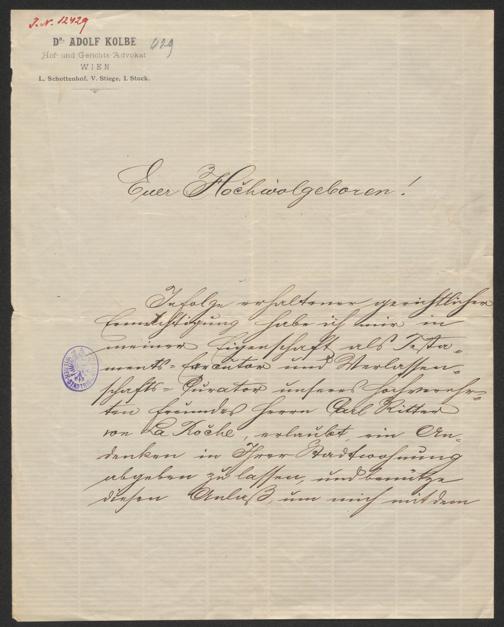 J.N. 12429
Dr. ADOLF KOLBE
Hof- und Gerichts-Advokat
WIEN
I., Schottenhof, V. Stiege, I. Stock.
Euer Hochwolgeboren!
Infolge erhaltener gerichtlicher
Ermächtigung habe ich mir in
meiner Eigenschaft als Testa-
ments-Executor und Verlassen-
schafts-Curator unseres hochverehr-
ten Freundes Herrn Carl Ritter
von La Roche, erlaubt, ein An-
denken in Ihrer Stadtwohnung
abgeben zu lassen, und benütze
diesen Anlaß, um mich mit dem